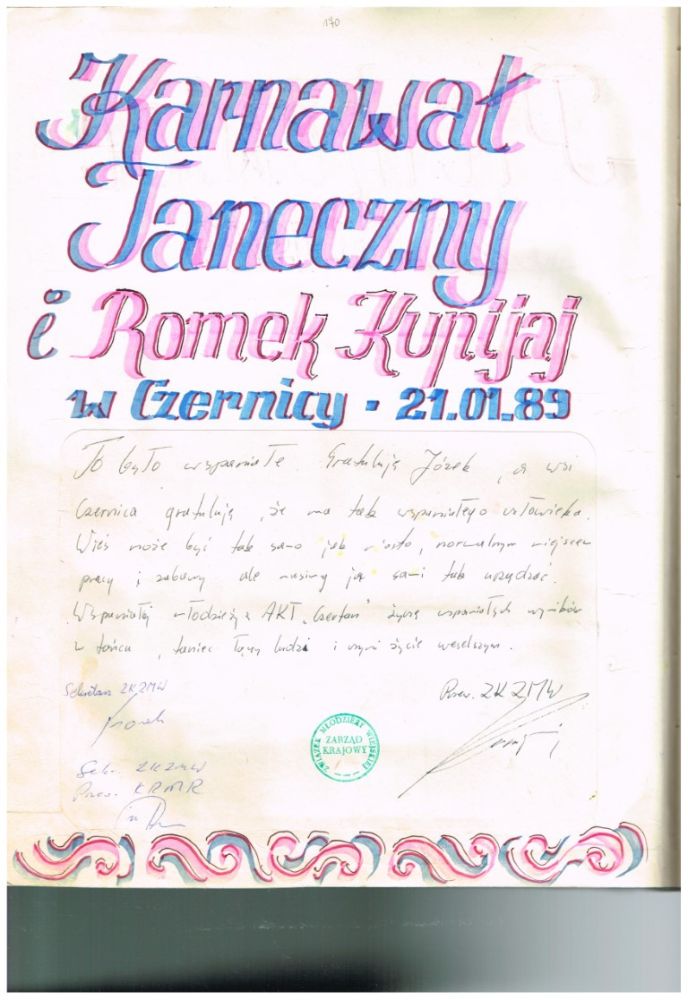 170
Karnawał
Taneczny
i Romek Kupijaj
w Czernicy · 21.01.89
To było wspaniałe. Gratuluję Józek, a wsi
Czernica gratuluję, że ma tak wspaniałego człowieka.
Wieś może być tak samo jak miasto, normalnym miejscem
pracy i zabawy ale musimy ją sami tak urządzać.
Wspaniałej młodzieży z AKT "Czantan" życzę wspaniałych wyników
w tańcu, taniec łączy ludzi i czyni życie weselszym.
Sekretarz ZK ZMW
Przew. ZK ZMW
ZWIĄZEK MŁODZIEŻY WIEJSKIEJ
ZARZĄD
KRAJOWY
Sekr. ZKZMW
Przew. KRMR